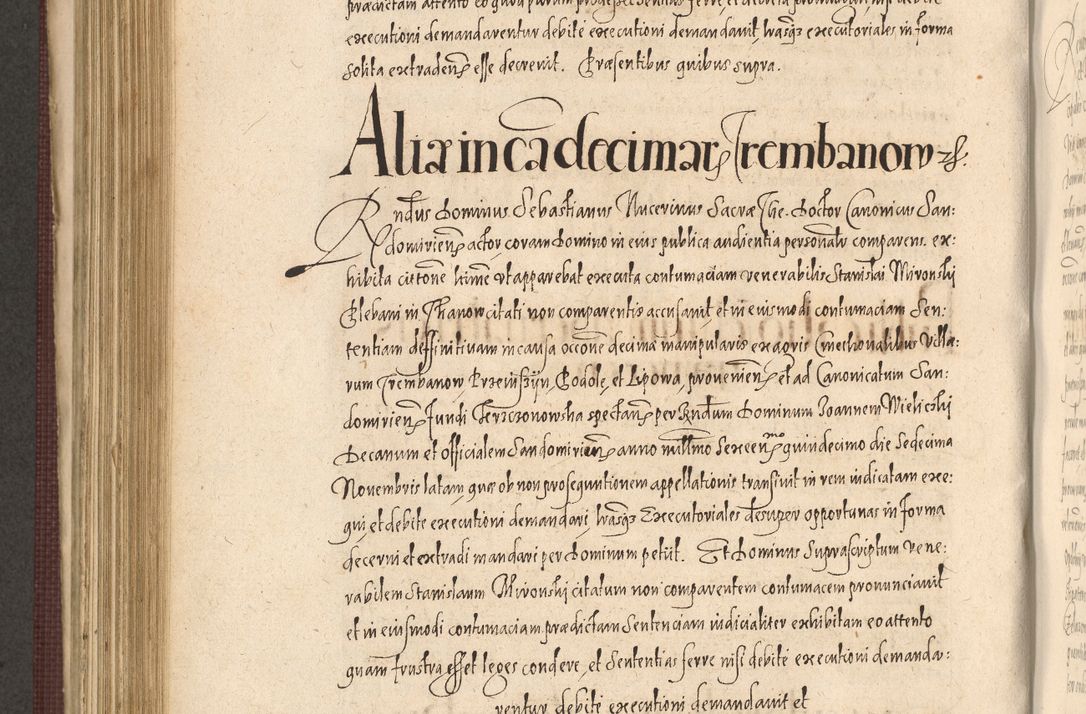 executioni demandarentur debite executioni demandavit, lrasq3 executoriales in forma
solita extraden3 esse decrevit. Præsentibus quibus supra.
Alia in cã decimar3 Trembanow 
Rndus Dominus Sebastianus Nucerinus Sacræ The. Doctor Canonicus San:
domirien3 actor coram Domino in eius publica audientia personalr comparens. ex:
hibita cittone hinc vt apparebat executa contumaciam venerabilis Stanislai Mironski
Plebani in Thanow citati non comparentis accusavit, et in eiusmodi contumaciam Sen:
tentiam deffinitivam in causa occone decimæ manipularis ex agris Cmethonalibus Villa:
rum Trembanow Przeuszyn, Podole, et Lipowa, provenien3 et ad Canonicatum San:
domirien3 fundi Jerzczonowska spectan3 per Rndum Dominum Joannem Wieliczki
Decanum et Officialem Sandomirien3 anno millmo Sexcenmo quindecimo die Sedecima
Novembris latam, quæ ob non prosequutionem appellationis transivit in rem iudicatam exe:
qui et debite executioni demandari, lrasq3 Executoriales desuper opportunas in forma
decerni et extradi mandari per Dominum petiit. Et Dominus Suprascriptum vene:
rabilem Stanislaum Mironski citatum non comparentem contumacem pronunciavit
et in eiusmodi contumaciam prædictam Sentenciam iudicialiter exhibitam eo attento
quam frustra esset leges condere, et Sententias ferre nisi debite executioni demanda:
rentur debite executioni demandavit et